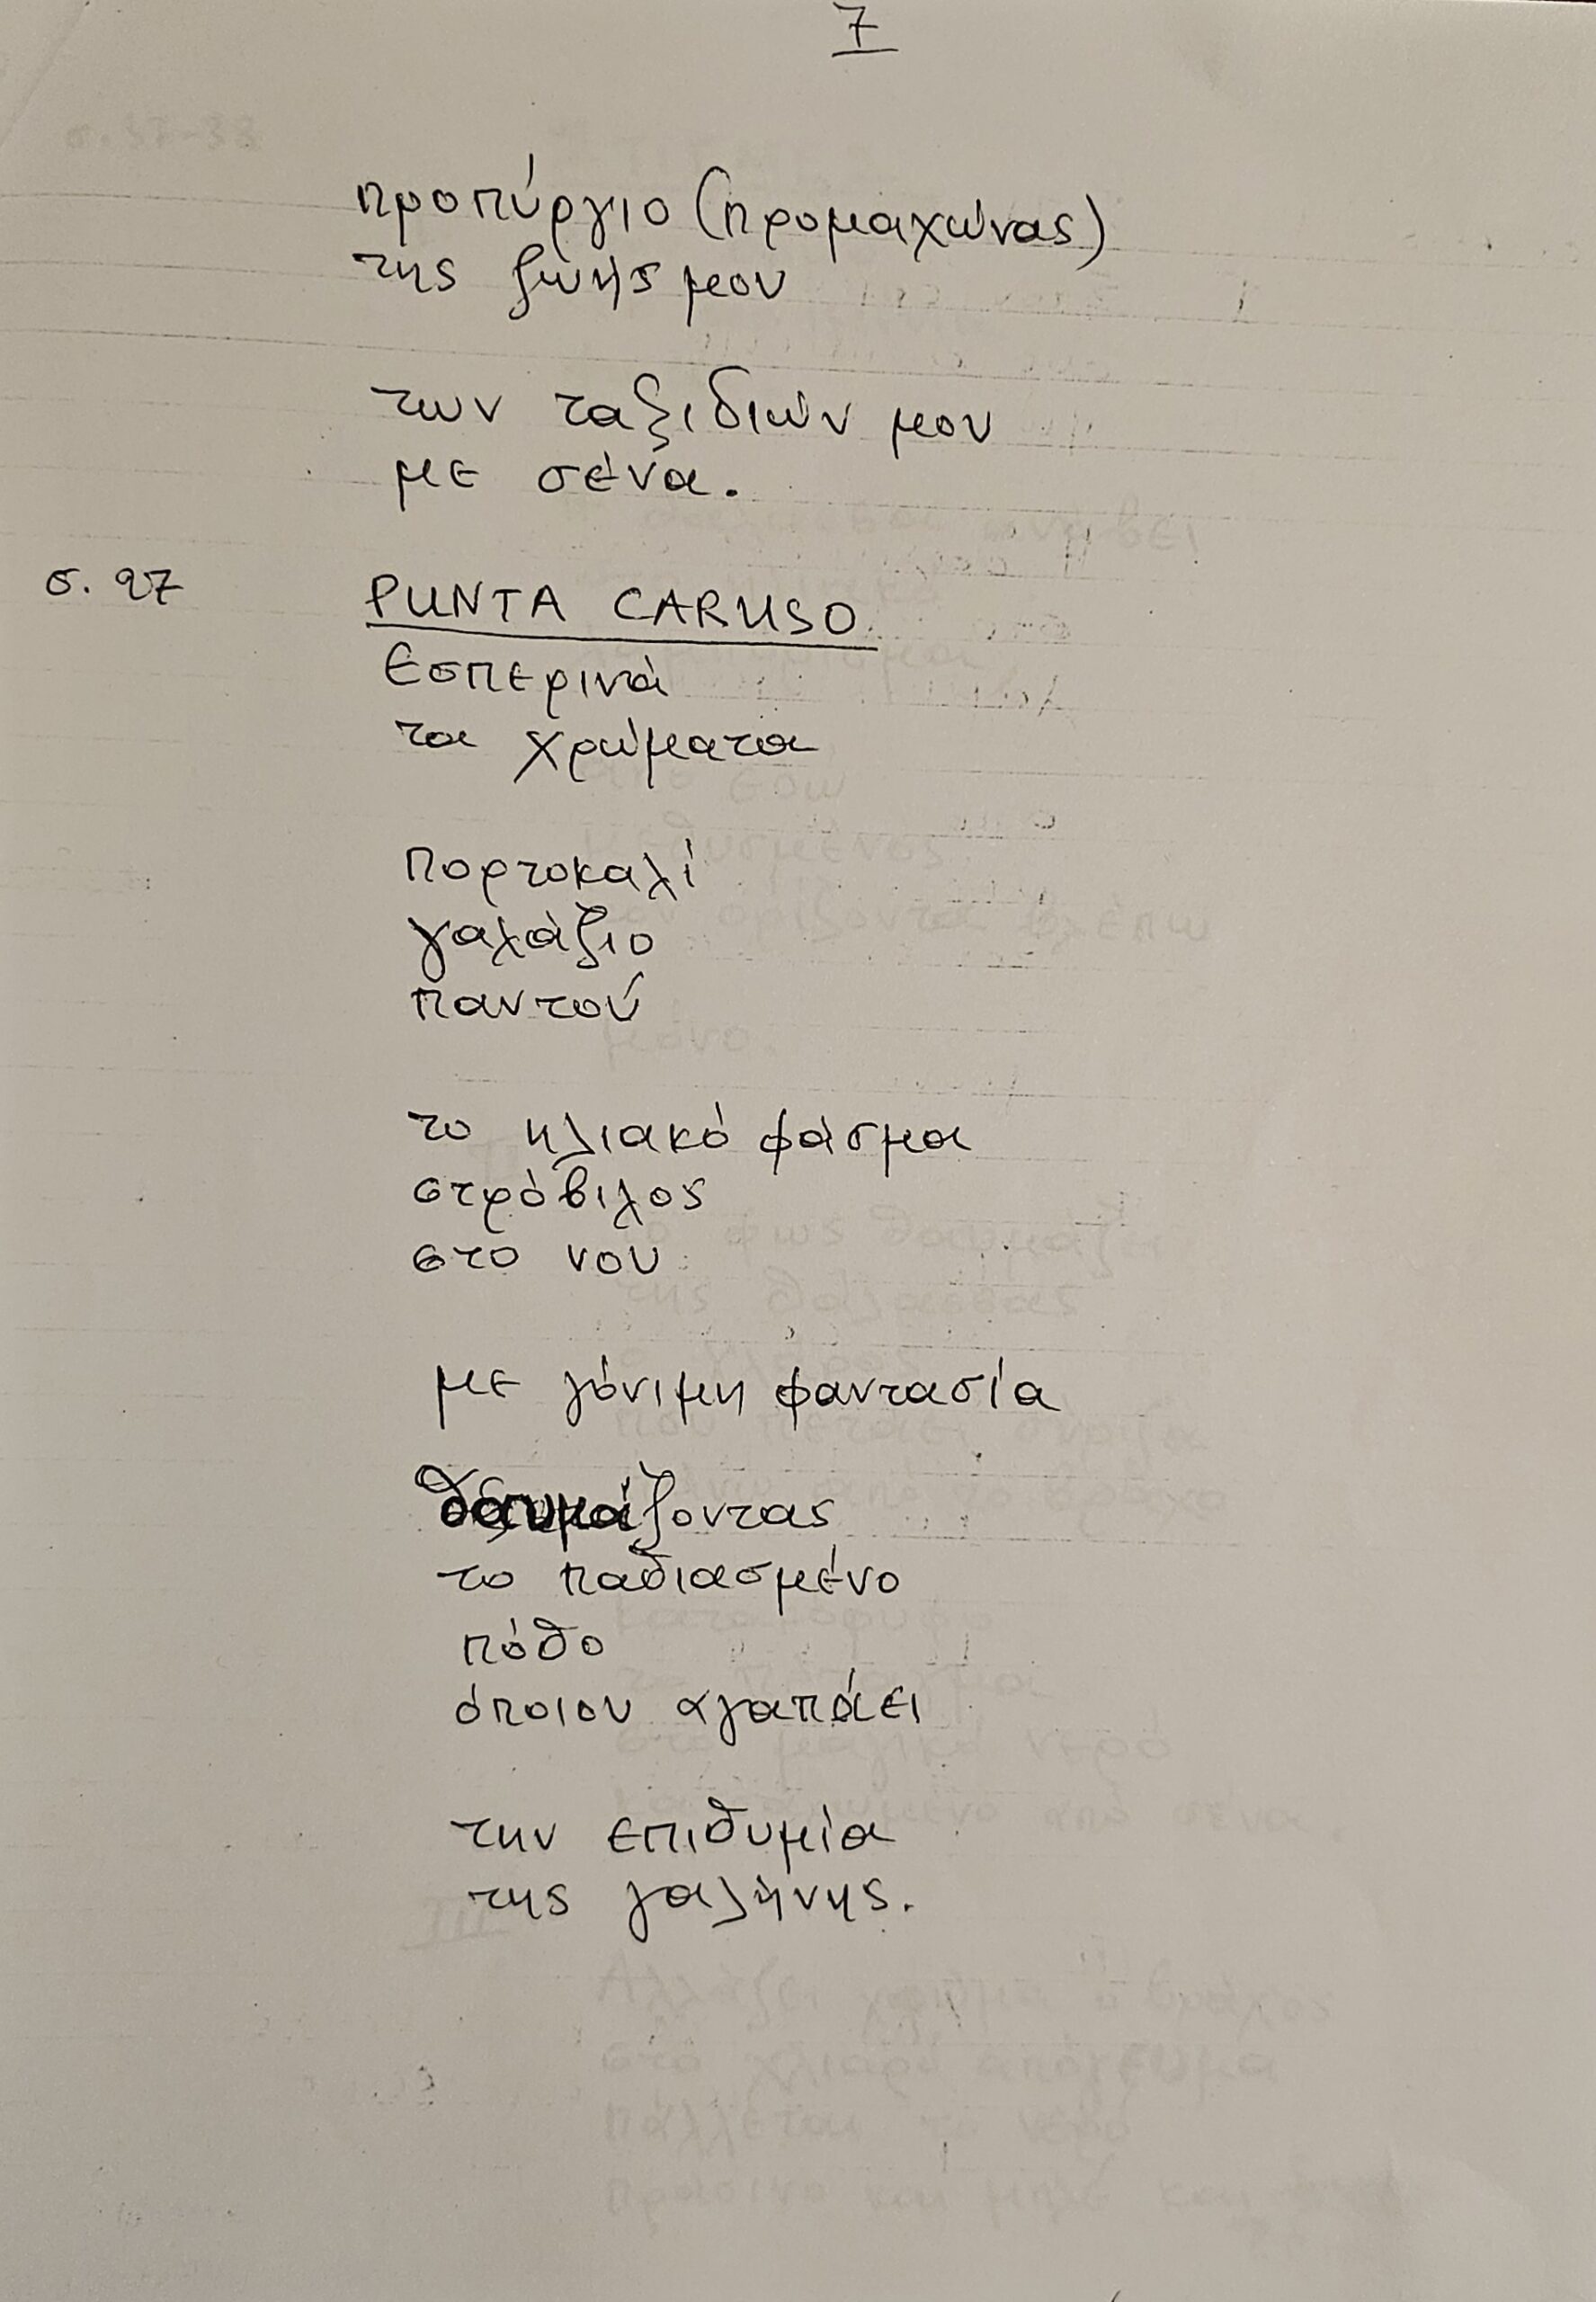 7
προπύργιο (προμαχώνας)
της ζωής μου
των ταξιδιών μου
με σένα.
σ. 27 PUNTA CARUSO
Εσπερινά
τα χρώματα
πορτοκαλί
γαλάζιο
παντού
το ηλιακό φάσμα
στρόβιλος
στο νου
με γόνιμη φαντασία
θαυμάζοντας
το παθιασμένο
πόθο
όποιου αγαπάει
την επιθυμία
της γαλήνης.